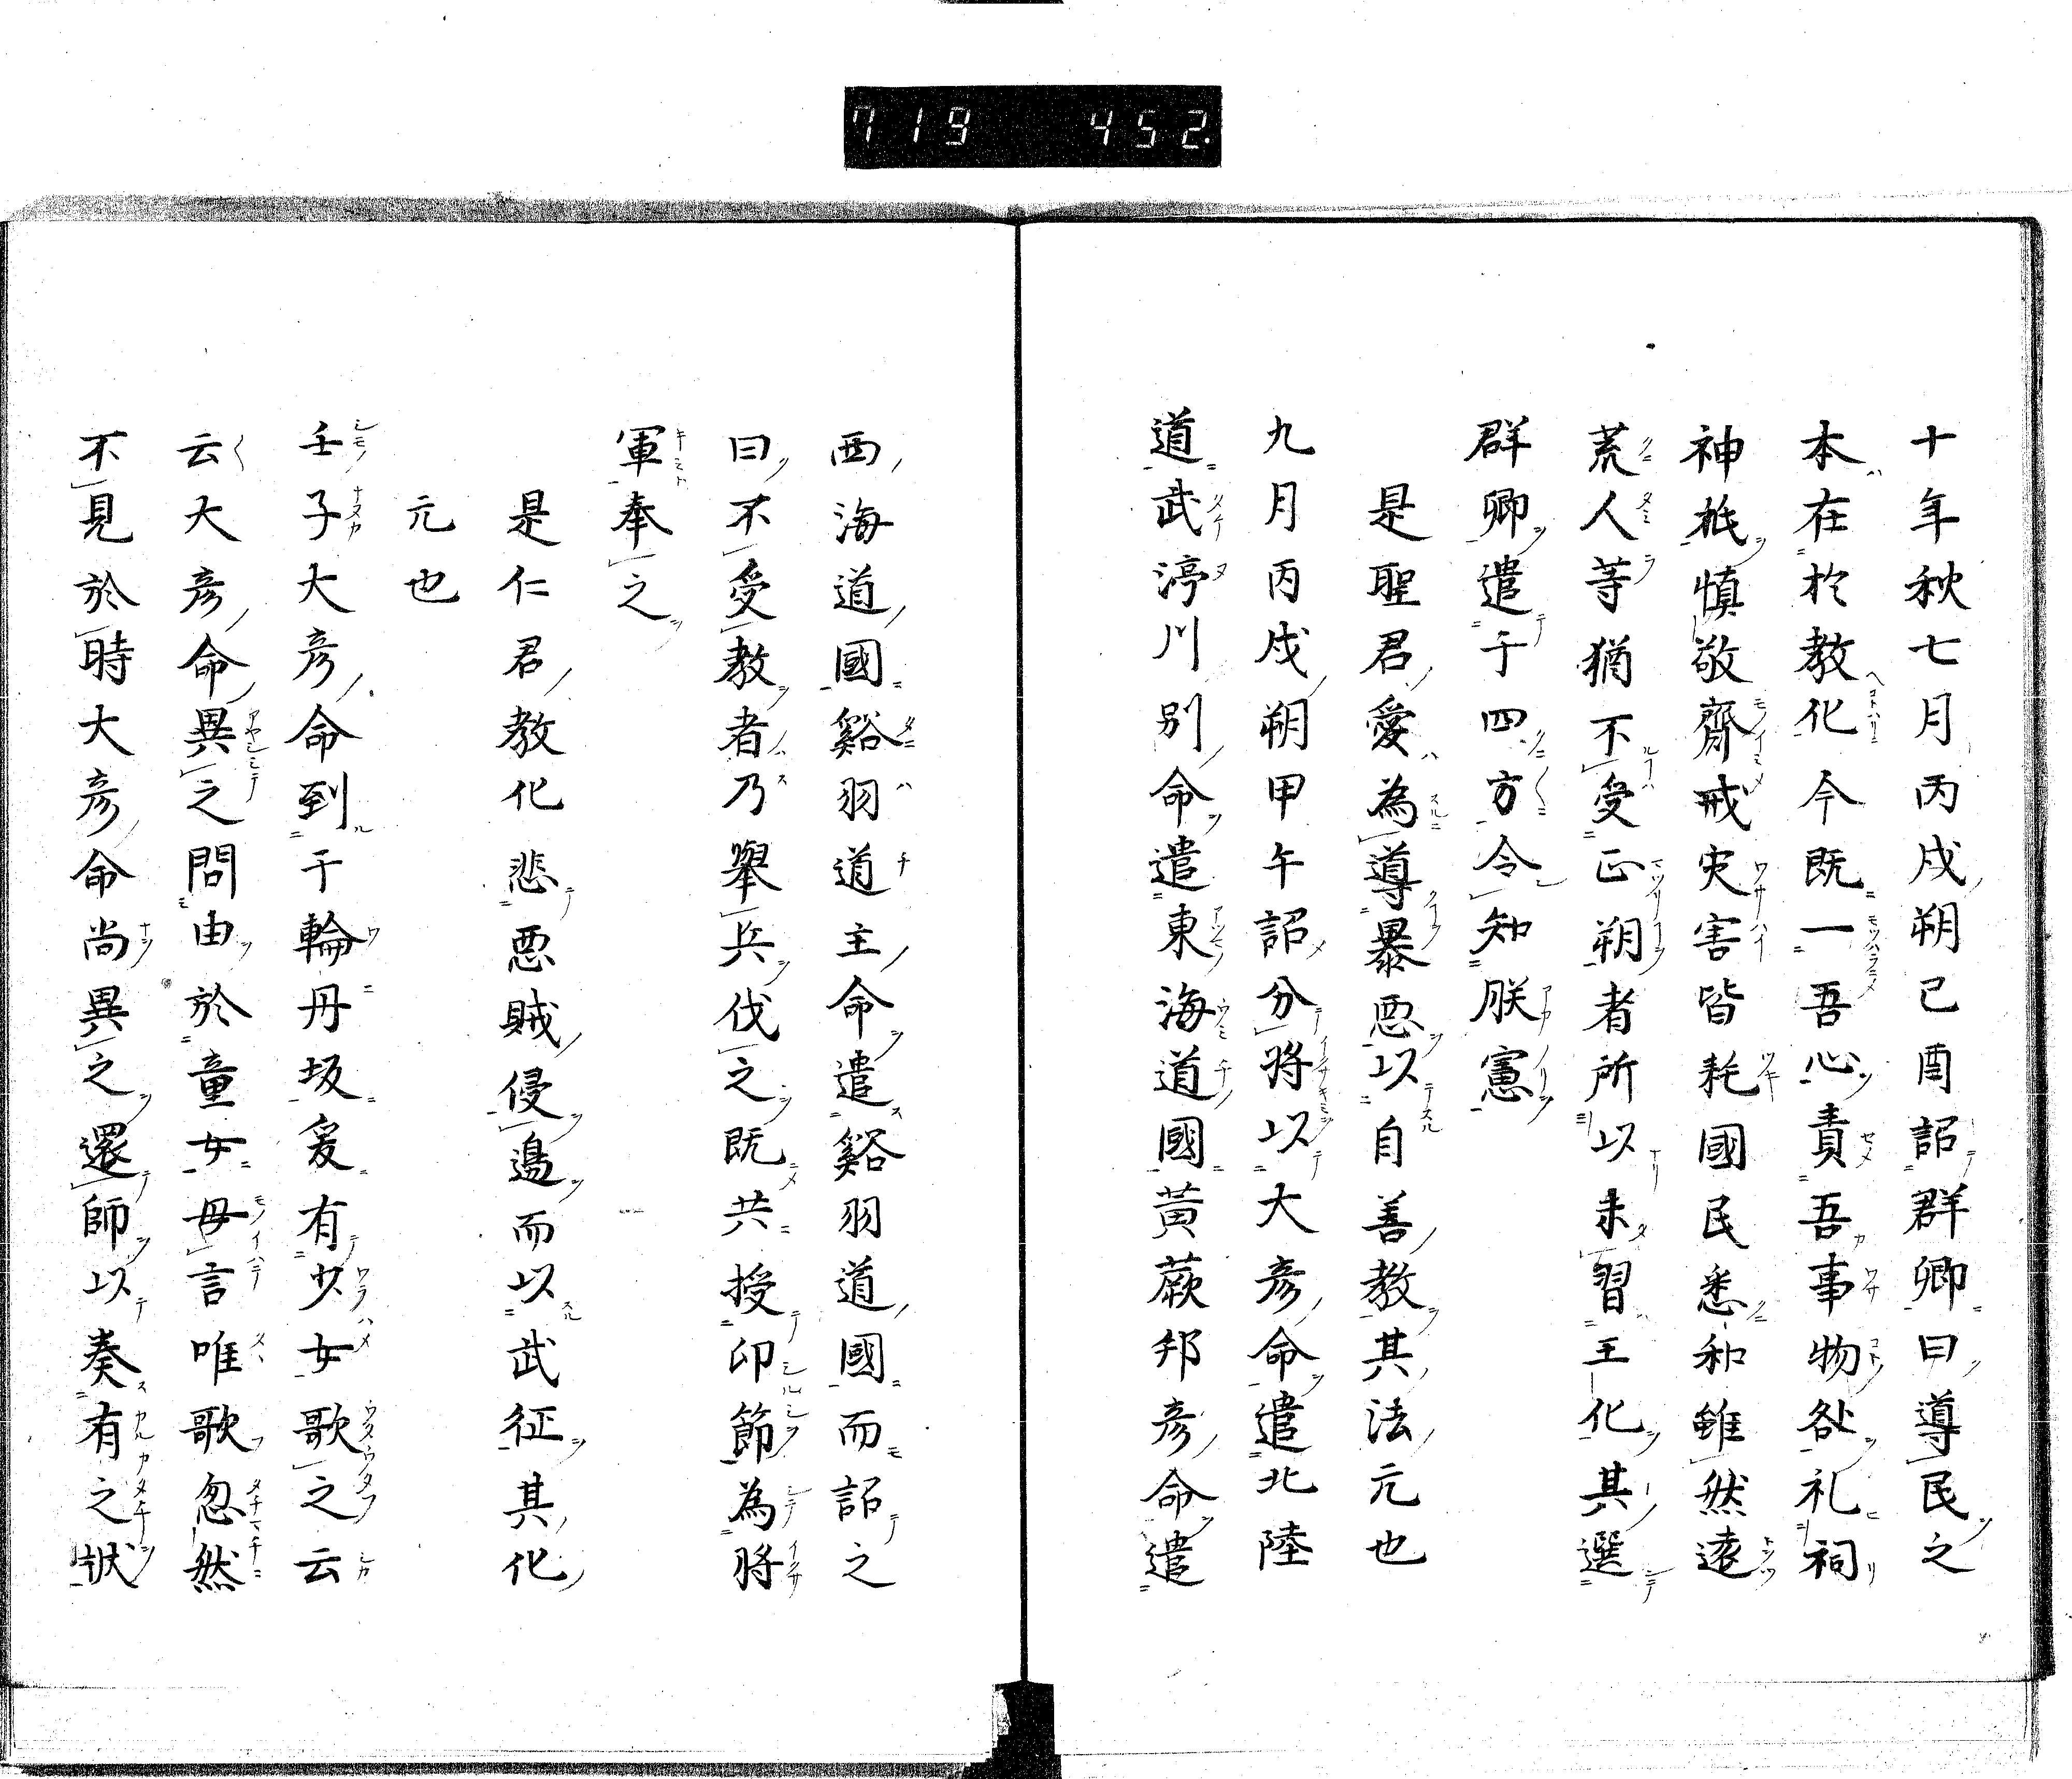 719 452
十年秋七月丙戌朔己酉詔群卿曰導民之
本在於教化今既一吾心責吾事物咎礼祠
神祇慎敬齊戒灾害皆耗國民悉和雖然遠
荒人等猶不受正朔者所以未習王化其選
群卿遣于四方令知朕憲
是聖君愛為導暴悪以自善教其法元也
九月丙戌朔甲午詔分将以大彦命遣北陸
道武渟川別命遣東海道國黄蕨邦彦命遣
西海道國谿羽道主命遣谿羽道國而詔之
曰不受教者乃舉兵伐之既共授印節為将
軍奉之
是仁君教化悲悪賊侵邉而以武征其化
元也
壬子大彦命到于輪丹坂爰有少女歌之云
云大彦命異之問由於童女毋言唯歌忽然
不見於時大彦命尚異之還師以奏有之状